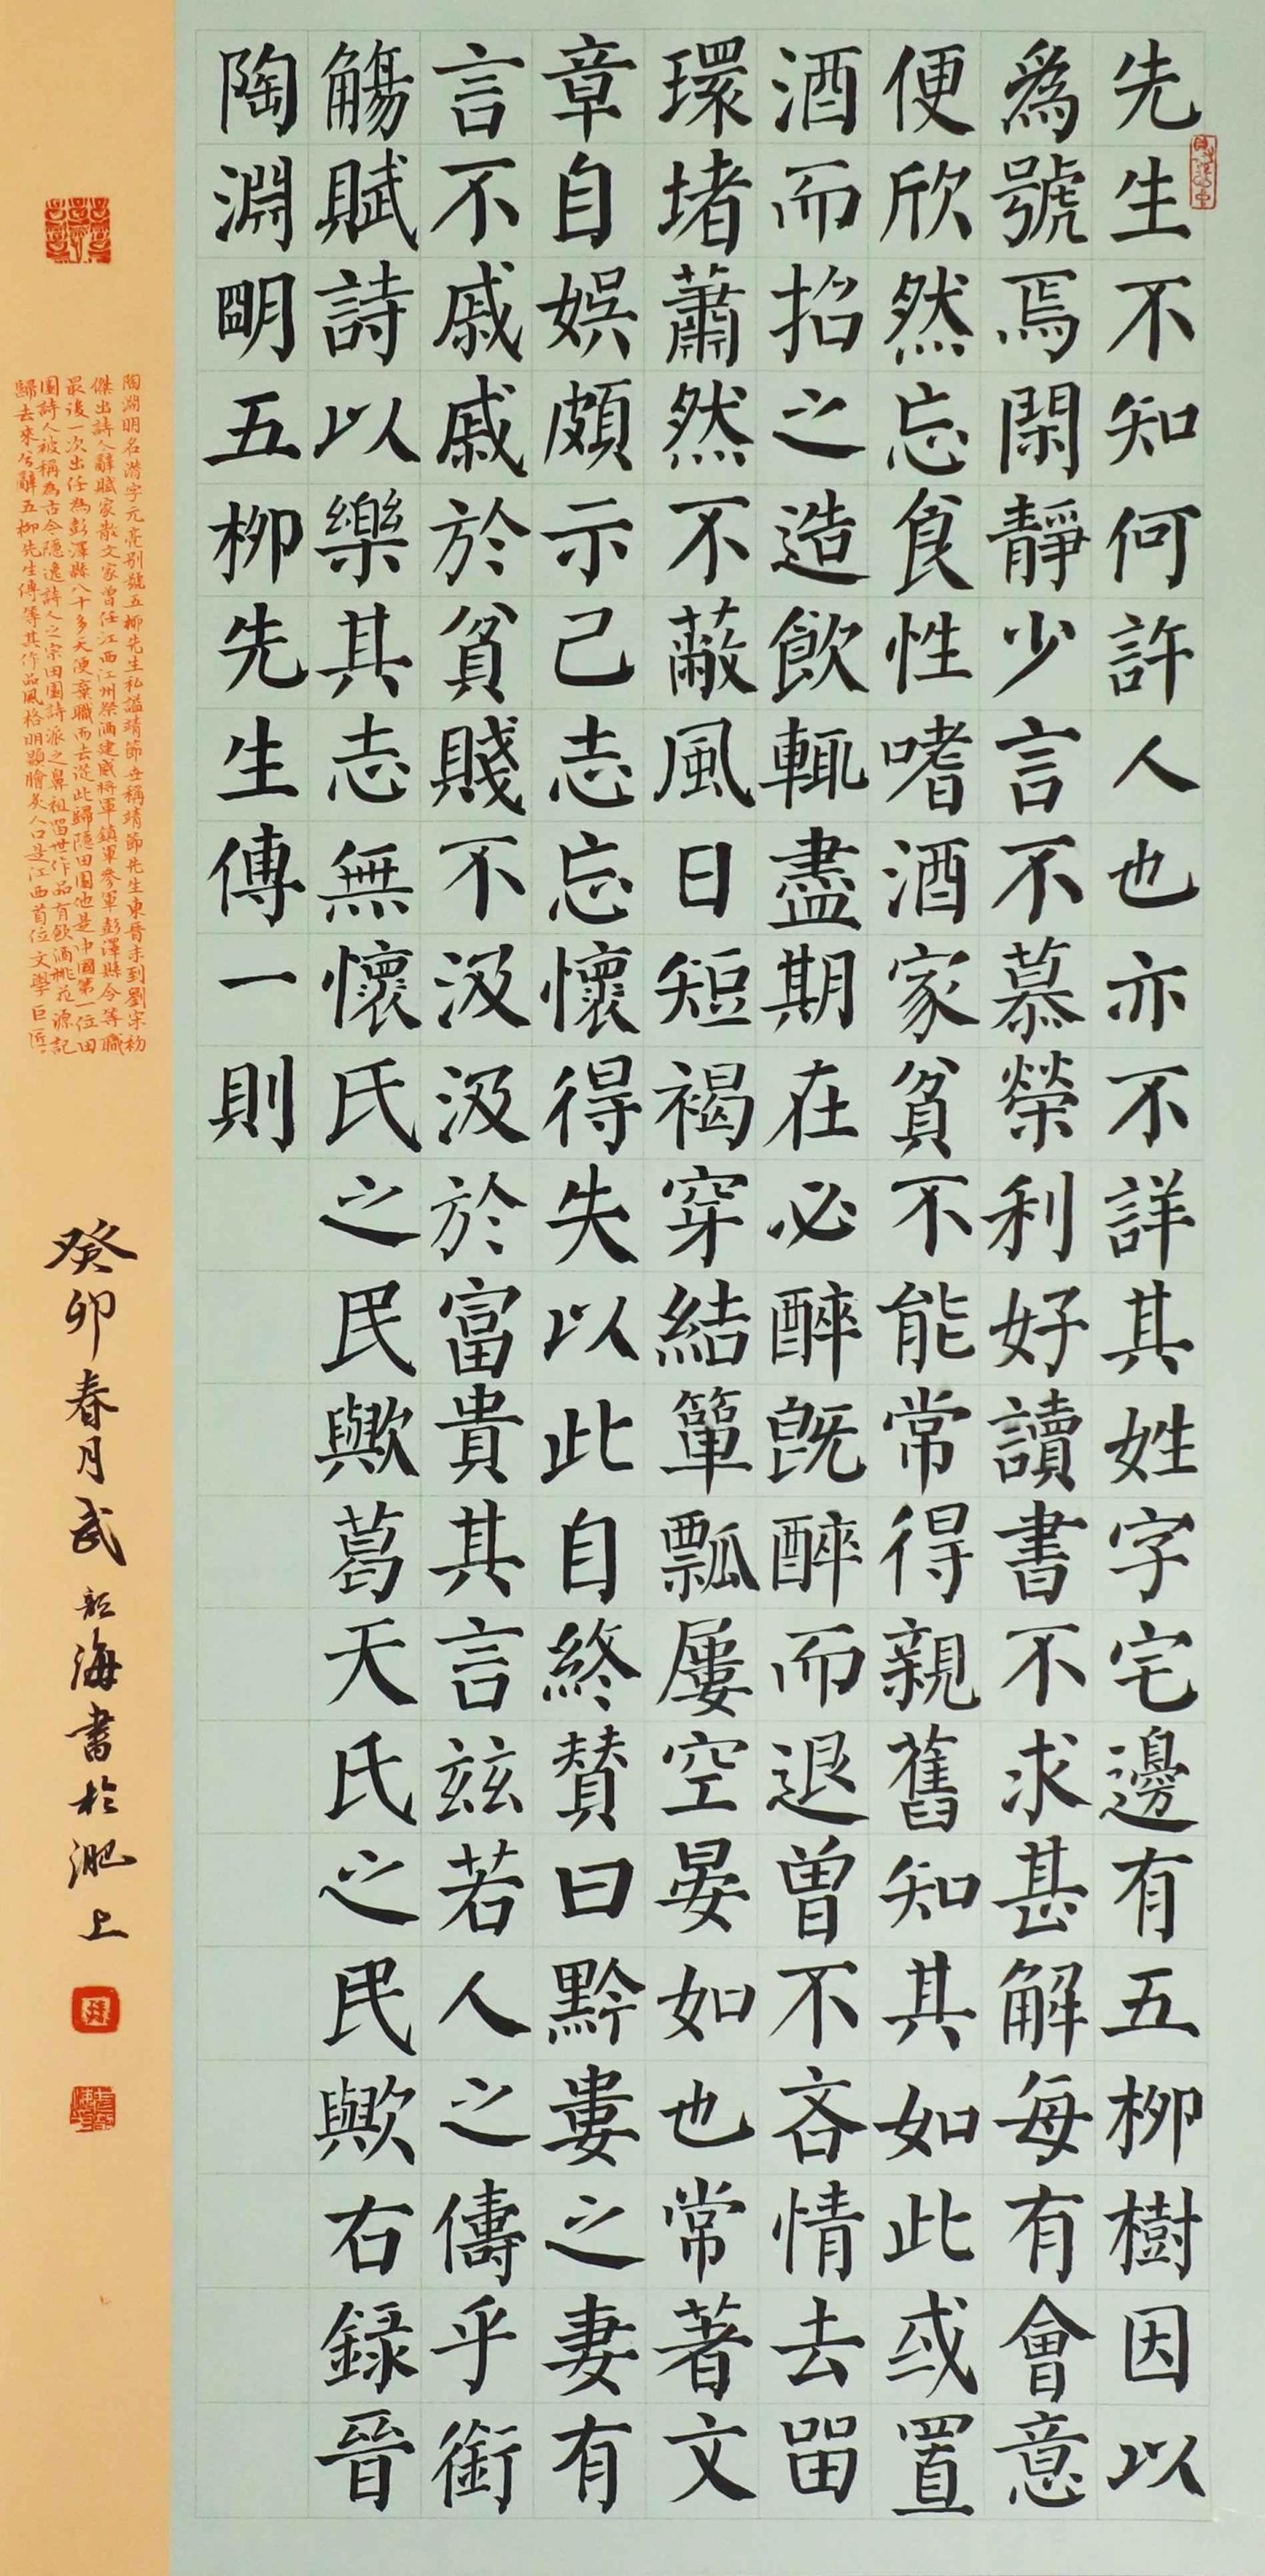 先生不知何許人也亦不詳其姓字宅邊有五柳樹因以
為號焉閑靜少言不慕榮利好讀書不求甚解每有會意
便欣然忘食性嗜酒家貧不能常得親舊知其如此或置
酒而招之造飲輒盡期在必醉既醉而退曾不吝情去留
環堵蕭然不蔽風日短褐穿結簞瓢屢空晏如也常著文
章自娛頗示己志忘懷得失以此自終贊曰黔婁之妻有
言不戚戚於貧賤不汲汲於富貴其言茲若人之儔乎銜
觴賦詩以樂其志無懷氏之民歟葛天氏之民歟右錄晉
陶淵明五柳先生傳一則
陶淵明名潛字元亮別號五柳先生私謚靖節世稱靖節先生東晉末到劉宋初
傑出詩人辭賦家散文家曾任江西江州祭酒建威將軍鎮軍參軍彭澤縣令等職
最後一次出任為彭澤縣八十多天便棄職而去從此歸隱田園他是中國第一位田
園詩人被稱為古今隱逸詩人之宗田園詩派之鼻祖留世作品有飲酒桃花源記
歸去來兮辭五柳先生傳等其作品風格明顯膾炙人口是江西首位文學巨匠
癸卯春月武海書於淝上